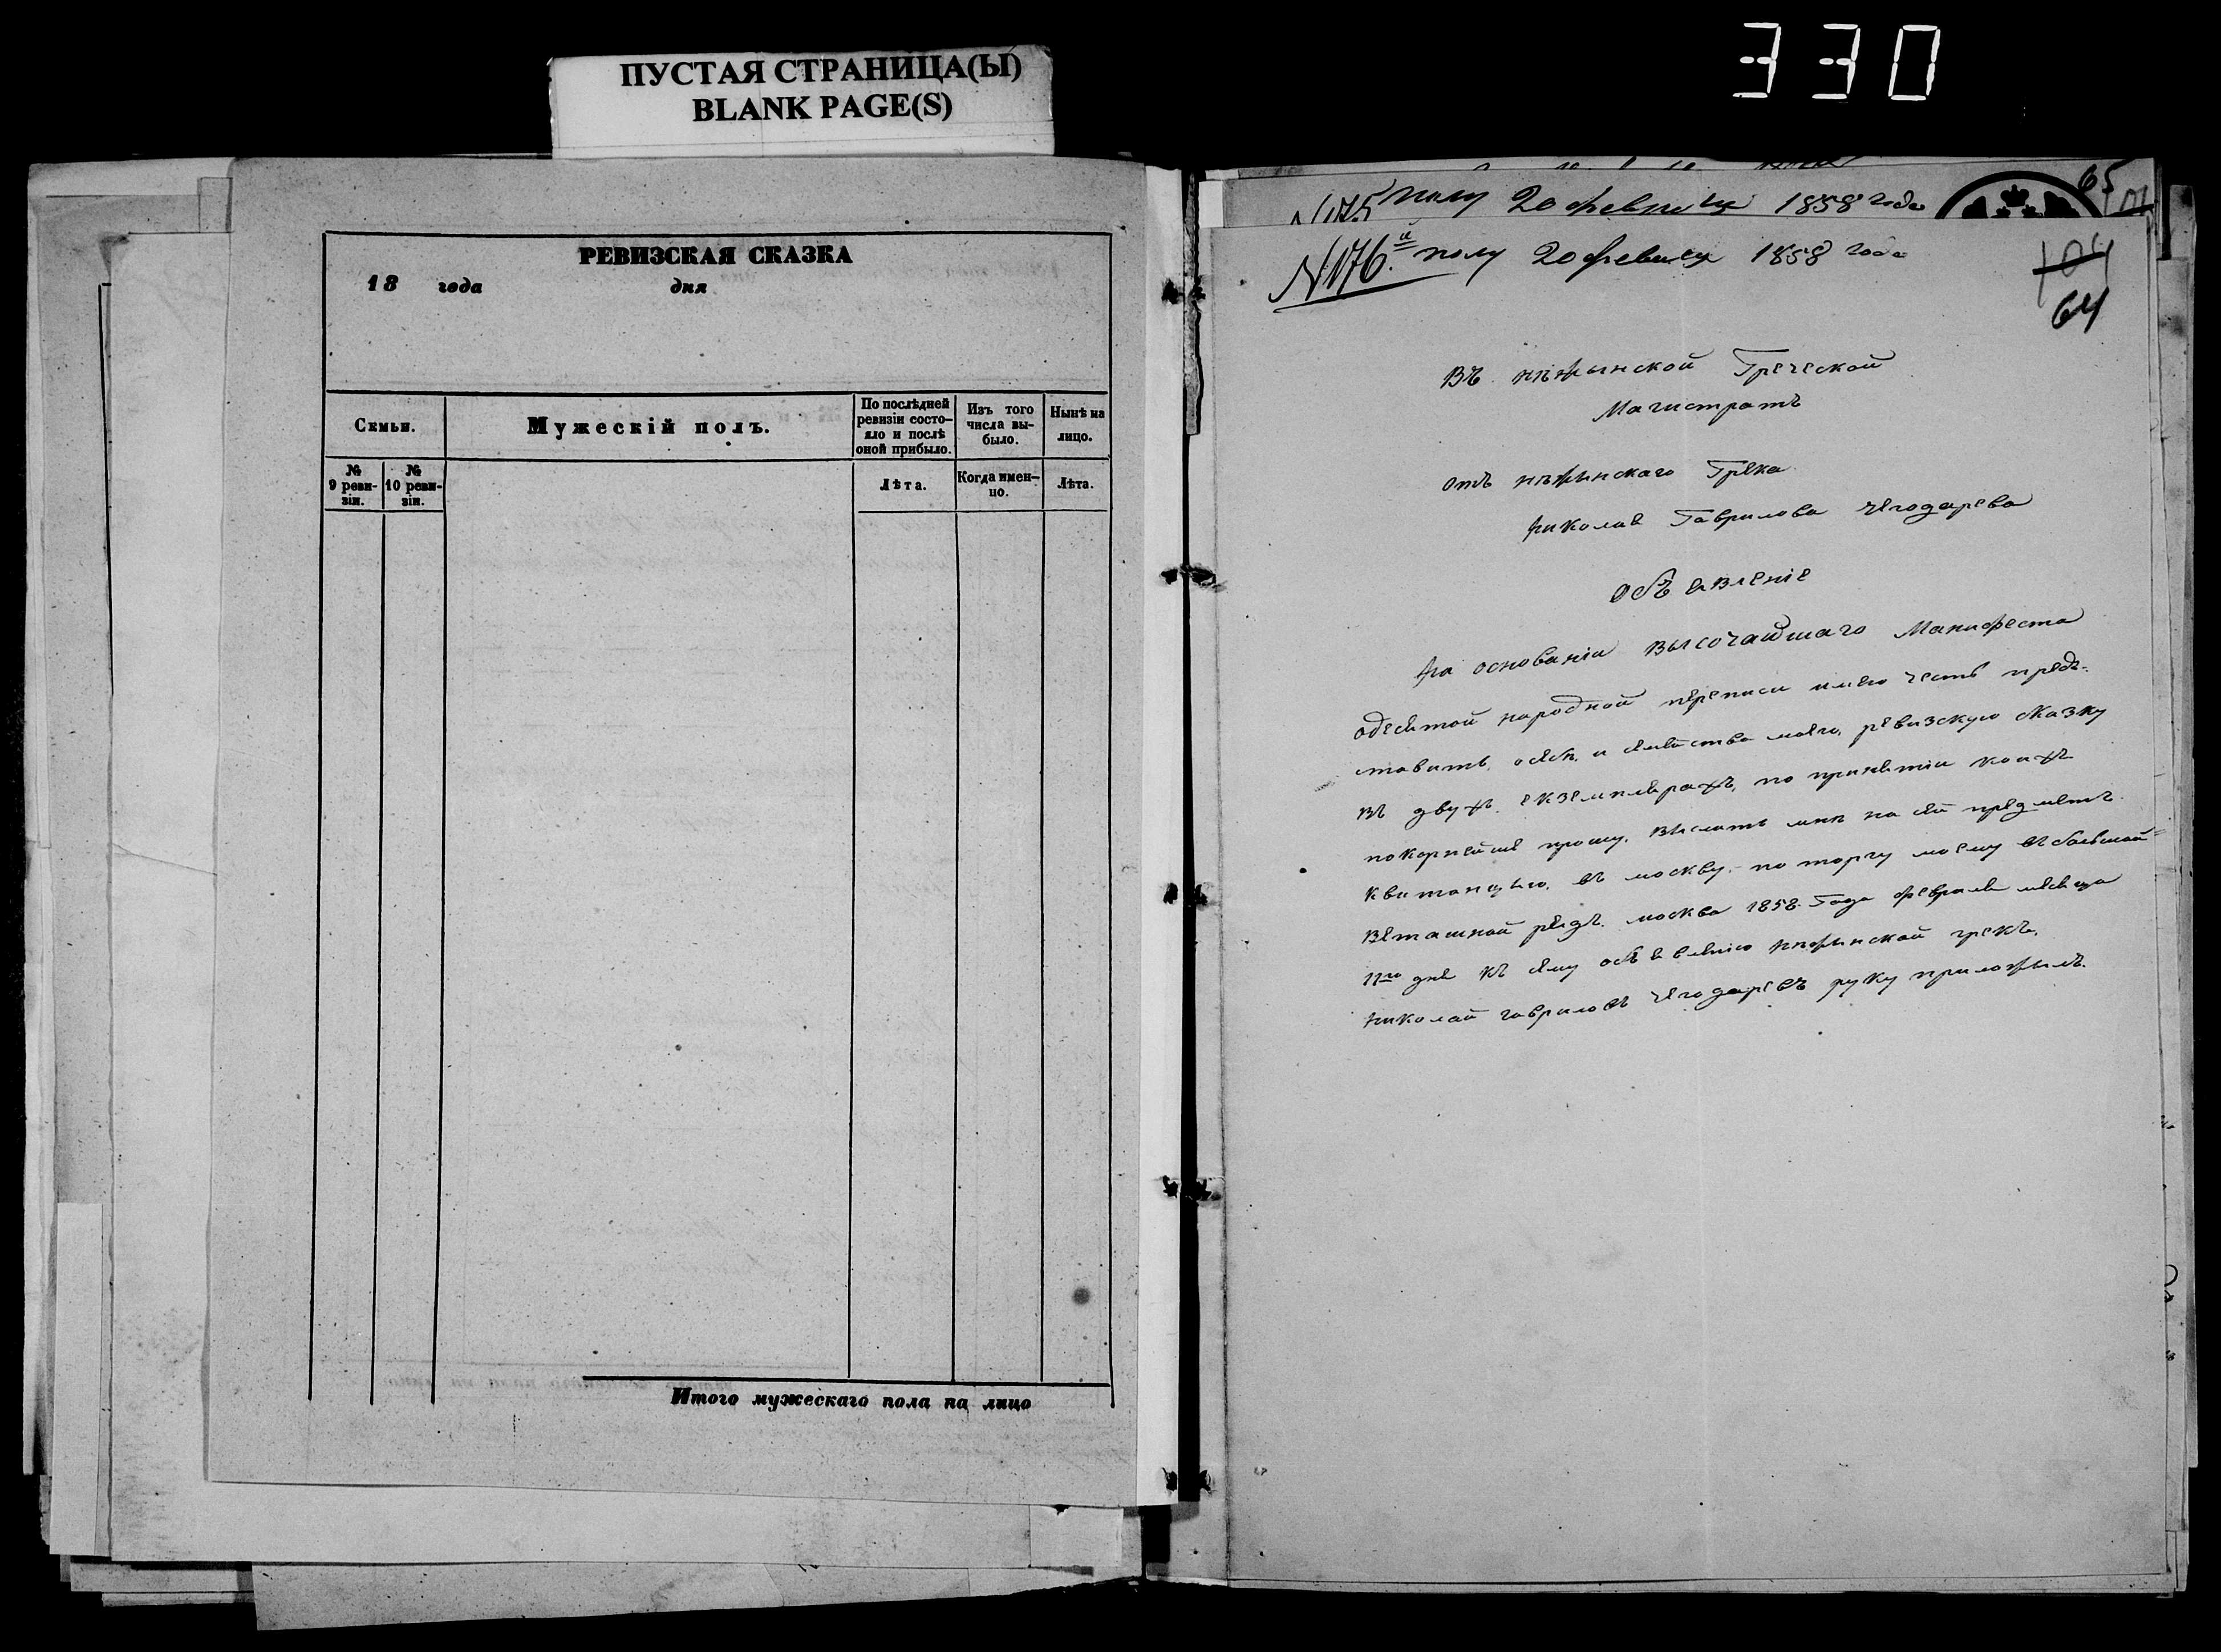 330
ПУСТАЯ СТРАНИЦА(Ы)
BLANK PAGE(S)
РЕВИЗСКАЯ СКАЗКА
18 года дня
Семьи.
Мужескій полъ.
По послѣдней ревизіи состо-яло и послѣ оной прибыло.
Изъ того числа вы-было.
Нынѣ на лицо.
№ 9 реви-зіи.
№ 10 реви-зіи.
Лѣта.
Когда имен-но.
Лѣта.
Итого мужескаго пола на лицо
65
N175 полу 20 февраля 1858 года
N176. полу 20 февраля 1858 года
104
64
Въ нѣжынской Греческой
Магистратъ
отъ нѣжынскаго Грека
николая Гаврилова Чегодарева
объявленіе
на основаніи высочайшаго Манифеста
одесятой народной переписи имею честь предъ-
ставить, осебѣ, и семѣйства моего, ревизскую сказку
въ двухъ екземплярахъ, по принятіи коихъ
покорнейше прошу, выслать мнѣ на сей предметъ
квитанцыю, въ москву, по торгу моему въ большой=
веташной рядъ. москва 1858 Года февраля месяца
11го дня къ сему объявленію нѣжынской грекъ,
николай гавриловъ Чегодаревъ руку приложылъ.